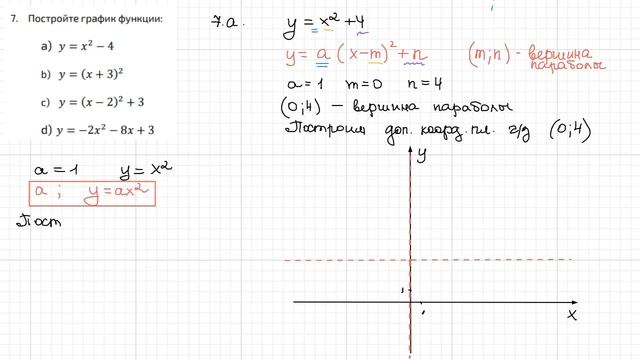 7. Постройте график функции:
a) y = x² − 4
b) y = (x + 3)²
c) y = (x − 2)² + 3
d) y = −2x² − 8x + 3
7.a. y = x² + 4
y = a (x − m)² + n (m; n) - вершина параболы
a = 1 m = 0 n = 4
(0; 4) — вершина параболы
Построим доп. коорд. пл. ч/з (0; 4)
a = 1 y = x²
a ; y = ax²
Пост
y
x